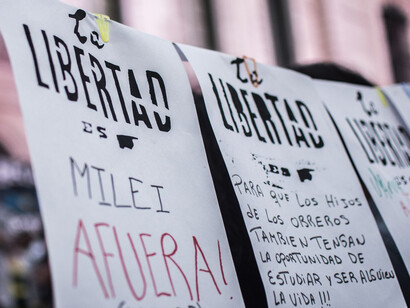 la
LIBERTAD
ES
MILEI
AFUERA!
la
LIBERTAD
ES
PARA QUE LOS HIJOS
DE LOS OBREROS
TAMBIEN TENGAN
LA OPORTUNIDAD DE
ESTUDIAR Y SER ALGUIEN
EN LA VIDA!!!
la
LIBERTAD
ES